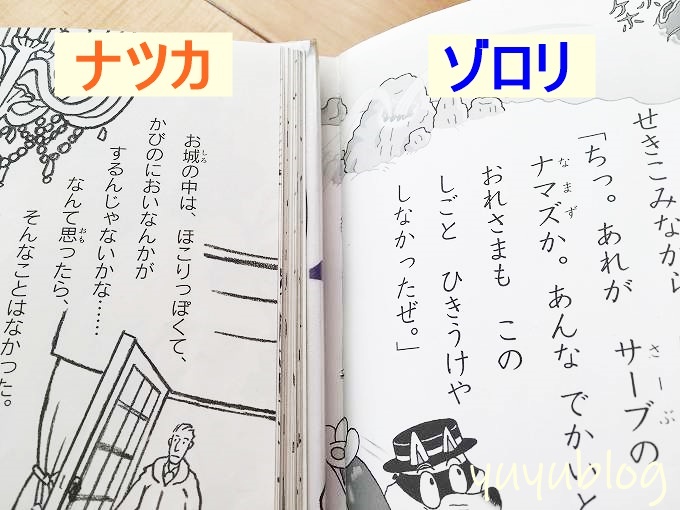 ナツカ
お城の中は、ほこりっぽくて、
しろ
かびのにおいなんかが
するんじゃないかな……
なんて思ったら、
おも
そんなことはなかった。
ゾロリ
ケホ
せきこみながら
「ちっ。あれが サーブの
さーぶ
ナマズか。あんな でかいと
なまず
おれさまも この
しごと ひきうけや
しなかったぜ。」
yuyublog